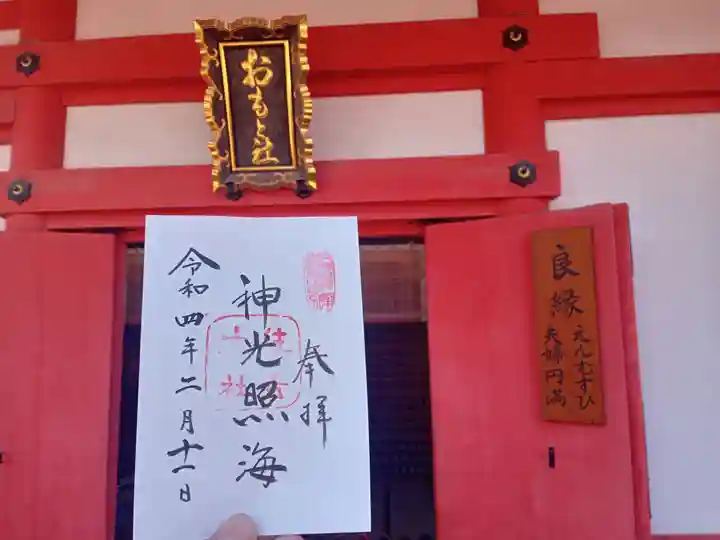 おもと社
奉拝
神光照海
令和四年二月十一日
良縁
えんむすび
夫婦円満